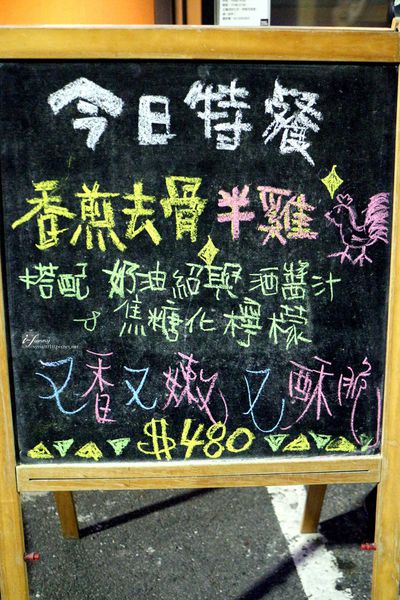 今日特餐
香煎去骨半雞
搭配 奶油紹興酒醬汁
& 焦糖化檸檬
又香又嫩又酥脆
$480